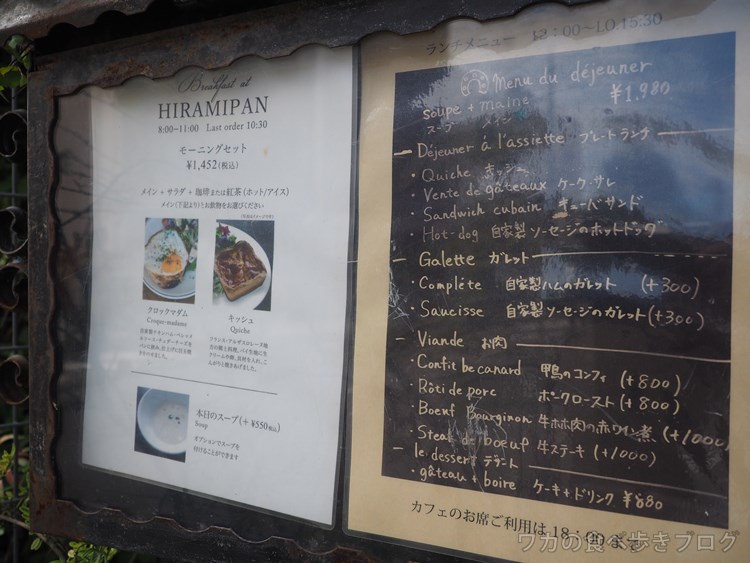 Breakfast at
HIRAMIPAN
8:00−11:00 Last order 10:30
モーニングセット
¥1,452(税込)
メイン + サラダ + 珈琲または紅茶 (ホット/アイス)
メイン(下記より)1、お飲物をお選びください
クロックマダム
Croque-madame
キッシュ
Quiche
本日のスープ(+ ¥550税込)
Soup
オプションでスープを
付けることができます
ランチメニュー 12:00〜LO.15:30
Menu du déjeuner
soupe + maine ¥1,980
スープ メイン
Déjeuner á l'assiette プレートランチ
・Quiche キッシュ
・Vente de gâteaux ケーク・サレ
・Sandwich cubain キューバサンド
・Hot-dog 自家製ソーセージのホットドッグ
Galette ガレット
・Complète 自家製ハムのガレット (+300)
・Saucisse 自家製ソーセージのガレット(+300)
Viande お肉
・Confit be canard 鴨のコンフィ (+800)
・Rôti de porc ポークロースト (+800)
・Boeuf Bourginon 牛ホホ肉の赤ワイン煮 (+1000)
・Steak de boeuf 牛ステーキ (+1000)
le dessert デザート
・gâteau + boire ケーキ+ドリンク ¥880
カフェのお席ご利用は18:00まで
ワカの食べ歩きブログ